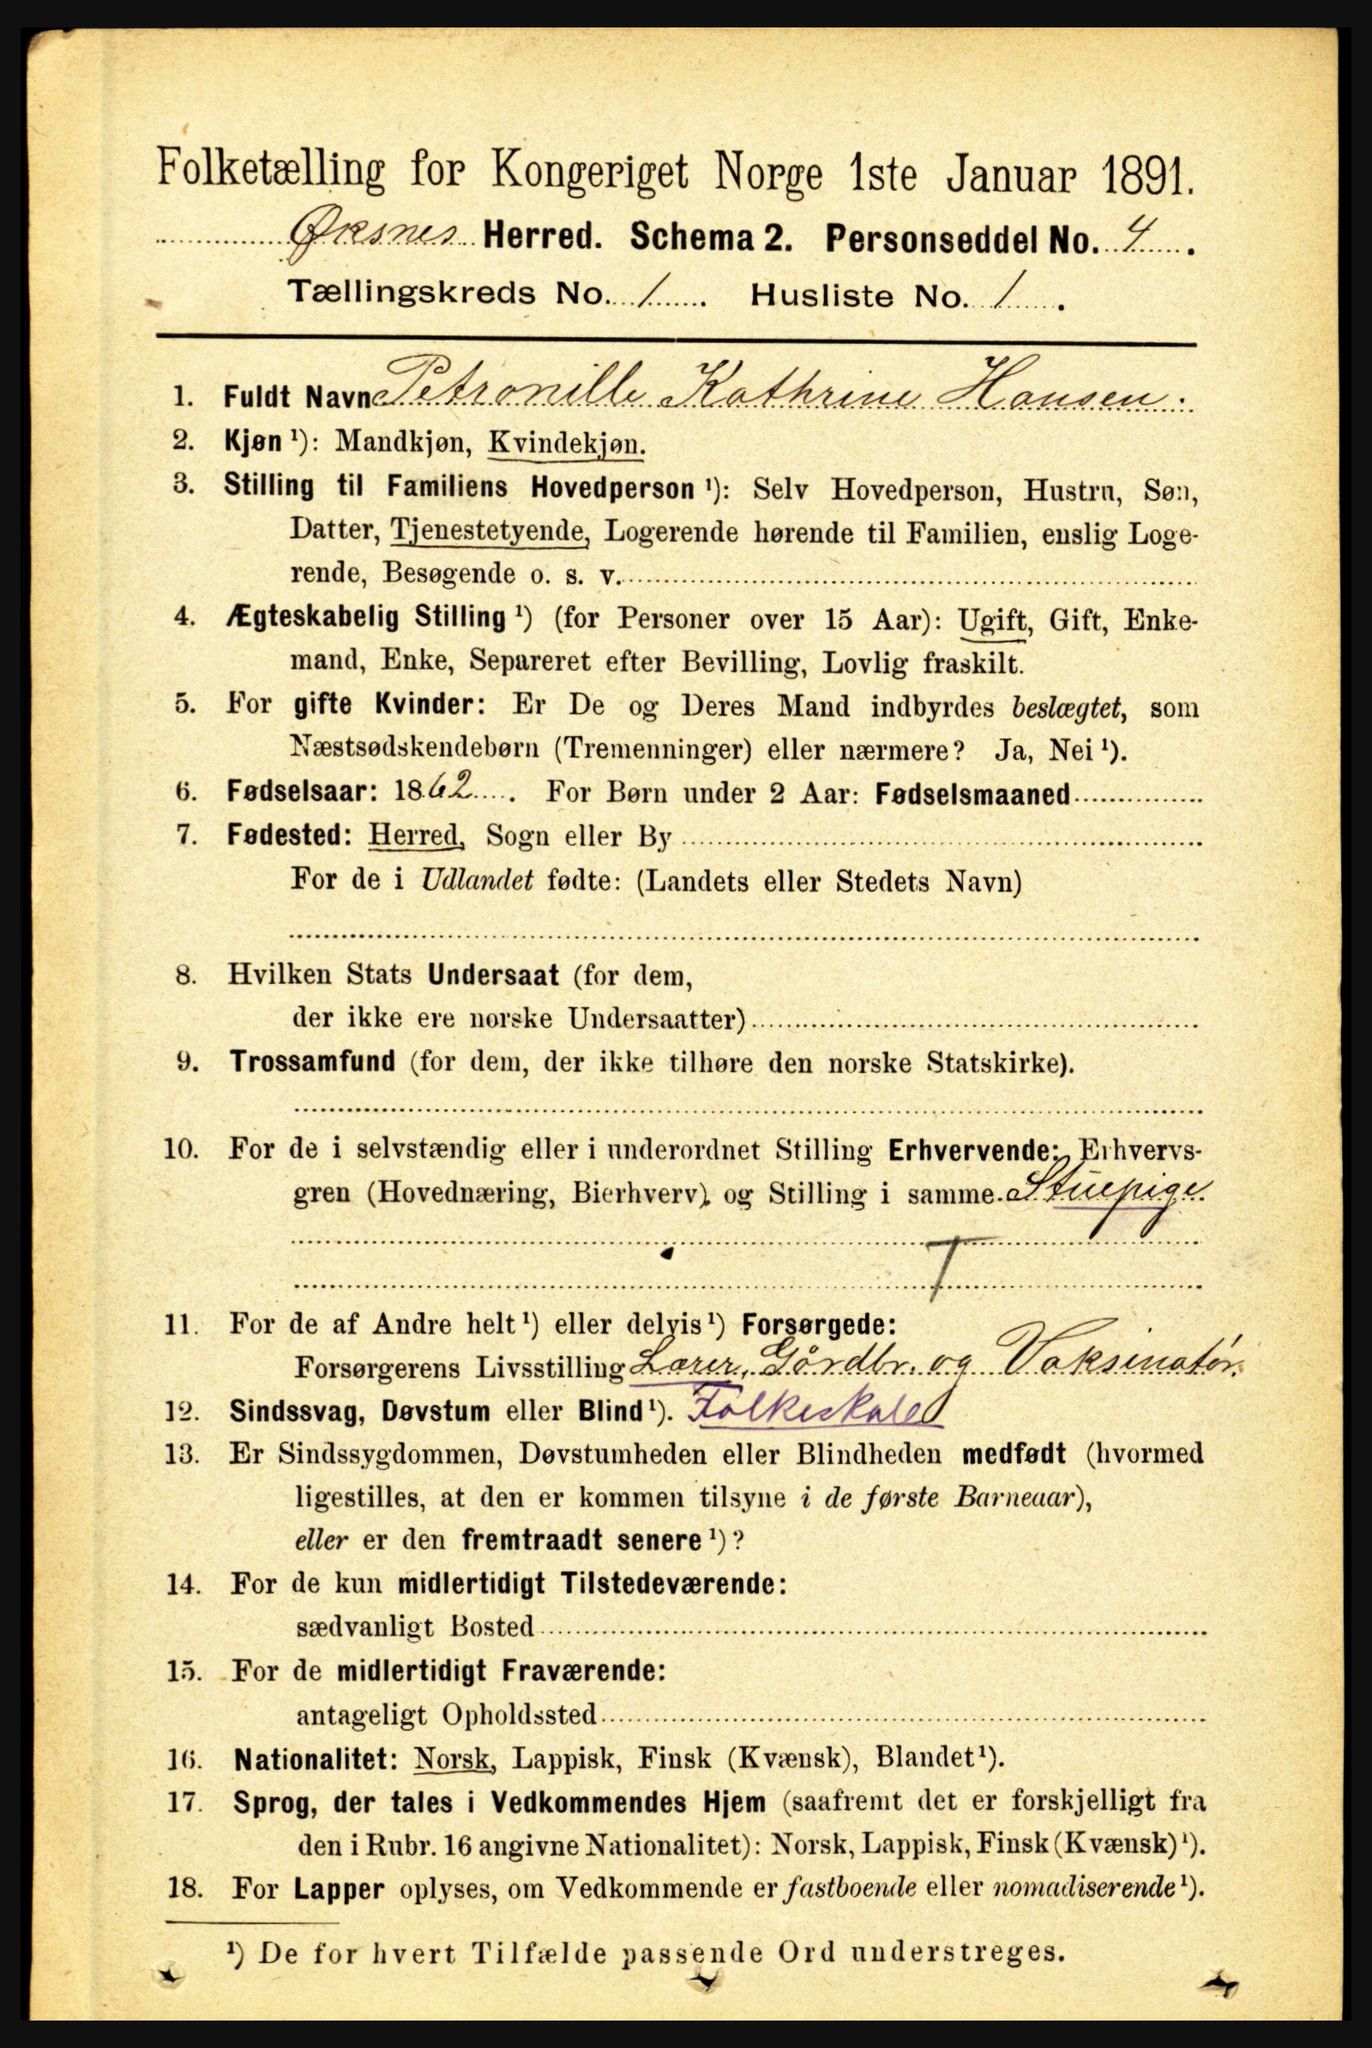 Folketælling for Kongeriget Norge 1ste Januar 1891.
Øksnes Herred. Schema 2. Personseddel No. 4.
Tællingskreds No. 1. Husliste No. 1.
1. Fuldt Navn Petronille Kathrine Hansen.
2. Kjøn¹): Mandkjøn, Kvindekjøn.
3. Stilling til Familiens Hovedperson¹): Selv Hovedperson, Hustru, Søn,
Datter, Tjenestetyende, Logerende hørende til Familien, enslig Loge-
rende, Besøgende o. s. v.
4. Ægteskabelig Stilling¹) (for Personer over 15 Aar): Ugift, Gift, Enke-
mand, Enke, Separeret efter Bevilling, Lovlig fraskilt.
5. For gifte Kvinder: Er De og Deres Mand indbyrdes beslægtet, som
Næstsødskendebørn (Tremenninger) eller nærmere? Ja, Nei¹).
6. Fødselsaar: 1862. For Børn under 2 Aar: Fødselsmaaned
7. Fødested: Herred, Sogn eller By
For de i Udlandet fødte: (Landets eller Stedets Navn)
8. Hvilken Stats Undersaat (for dem,
der ikke ere norske Undersaatter)
9. Trossamfund (for dem, der ikke tilhøre den norske Statskirke).
10. For de i selvstændig eller i underordnet Stilling Erhvervende: Erhvervs-
gren (Hovednæring, Bierhverv) og Stilling i samme. Stuepige
T
11. For de af Andre helt¹) eller delvis¹) Forsørgede:
Forsørgerens Livsstilling Lærer, Gårdbr. og Vaksinatør.
12. Sindssvag, Døvstum eller Blind¹). Folkeskole
13. Er Sindssygdommen, Døvstumheden eller Blindheden medfødt (hvormed
ligestilles, at den er kommen tilsyne i de første Barneaar),
eller er den fremtraadt senere¹)?
14. For de kun midlertidigt Tilstedeværende:
sædvanligt Bosted
15. For de midlertidigt Fraværende:
antageligt Opholdssted
16. Nationalitet: Norsk, Lappisk, Finsk (Kvænsk), Blandet¹).
17. Sprog, der tales i Vedkommendes Hjem (saafremt det er forskjelligt fra
den i Rubr. 16 angivne Nationalitet): Norsk, Lappisk, Finsk (Kvænsk)¹).
18. For Lapper oplyses, om Vedkommende er fastboende eller nomadiserende¹).
¹) De for hvert Tilfælde passende Ord understreges.